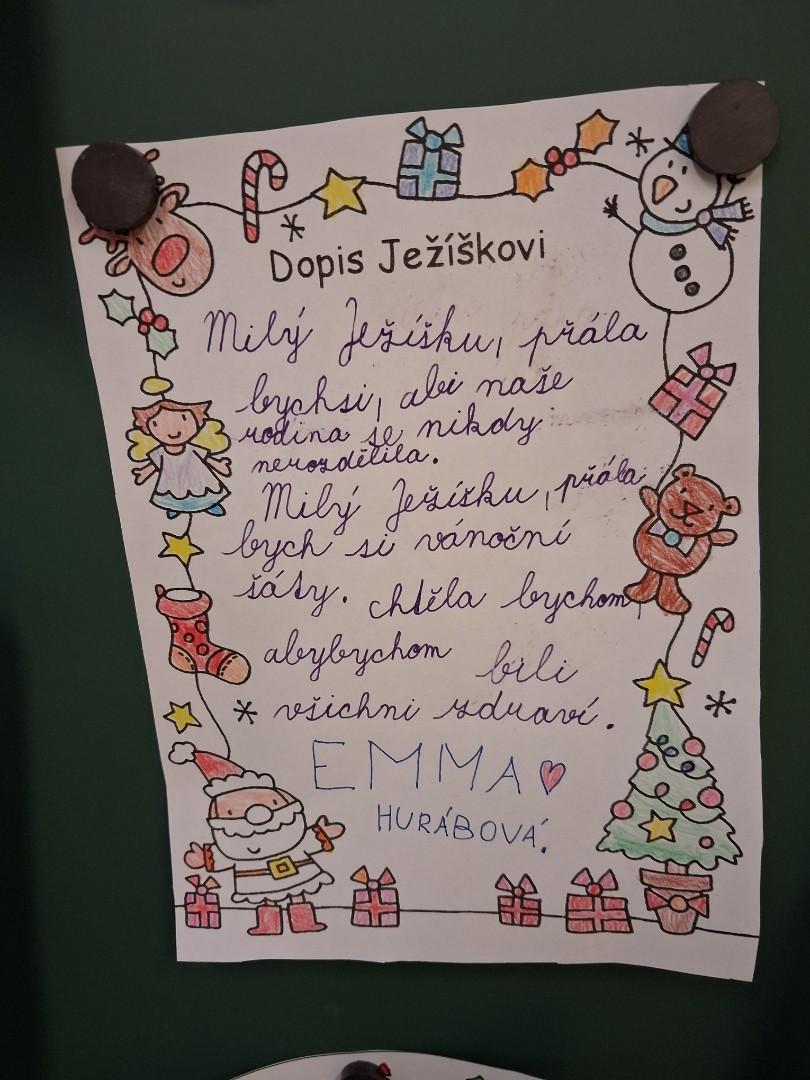 Dopis Ježíškovi
Milý Ježíšku, přála
bychsi, abi naše
rodina se nikdy
nerozdělila.
Milý Ježíšku, přála
bych si vánoční
šáty. chtěla bychom,
abybychom bili
všichni zdraví.
EMMA
HURÁBOVÁ.